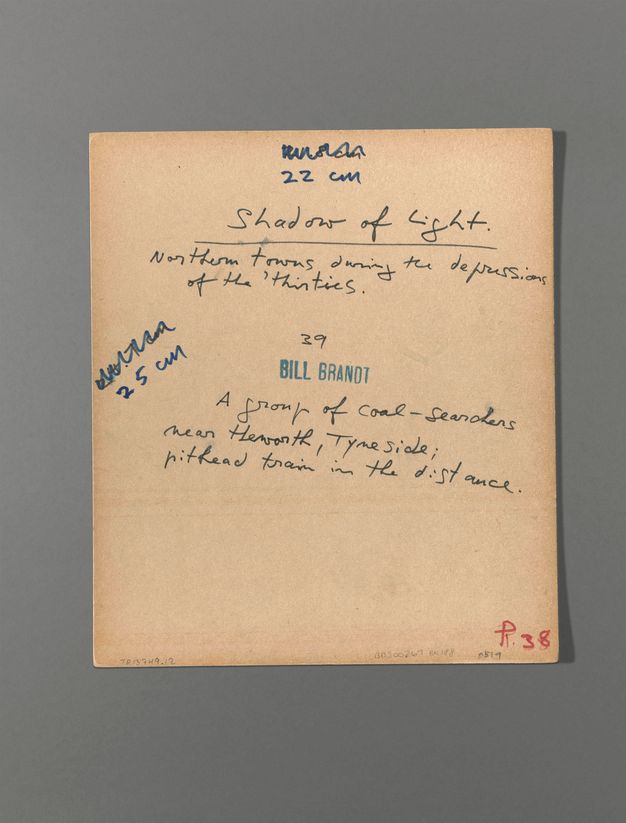 22 cm
Shadow of Light.
Northern towns during the depressions
of the 'thirties.
25 cm
39
BILL BRANDT
A group of coal-searchers
near Heworth, Tyneside;
pithead train in the distance.
38